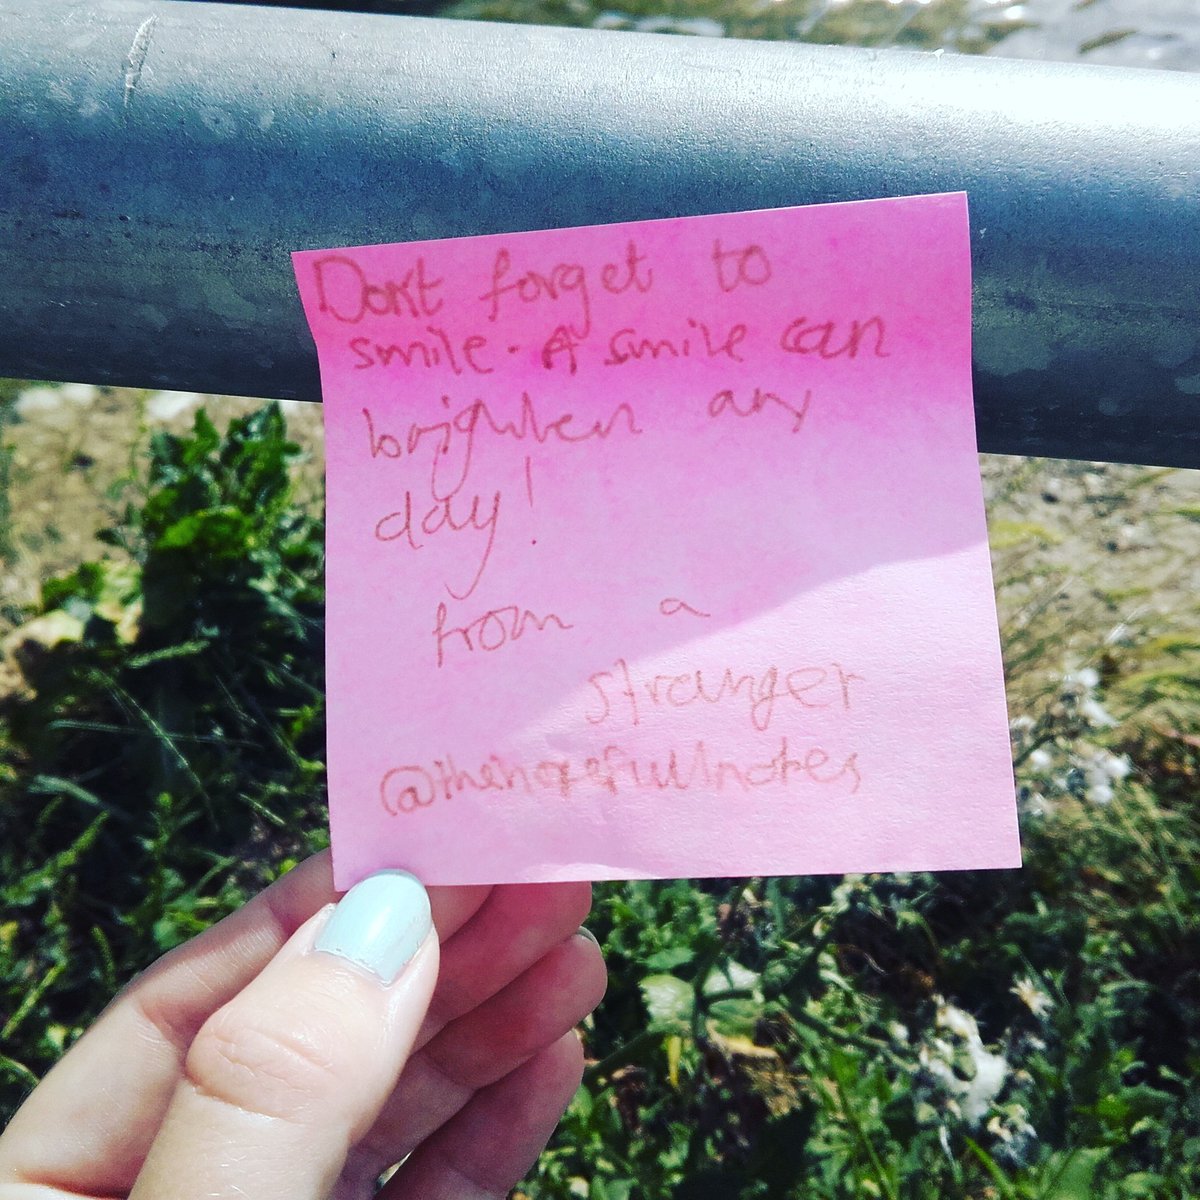 Dont forget to
smile. A smile can
brighten any
day!
from a
stranger
@thehopefullnotes